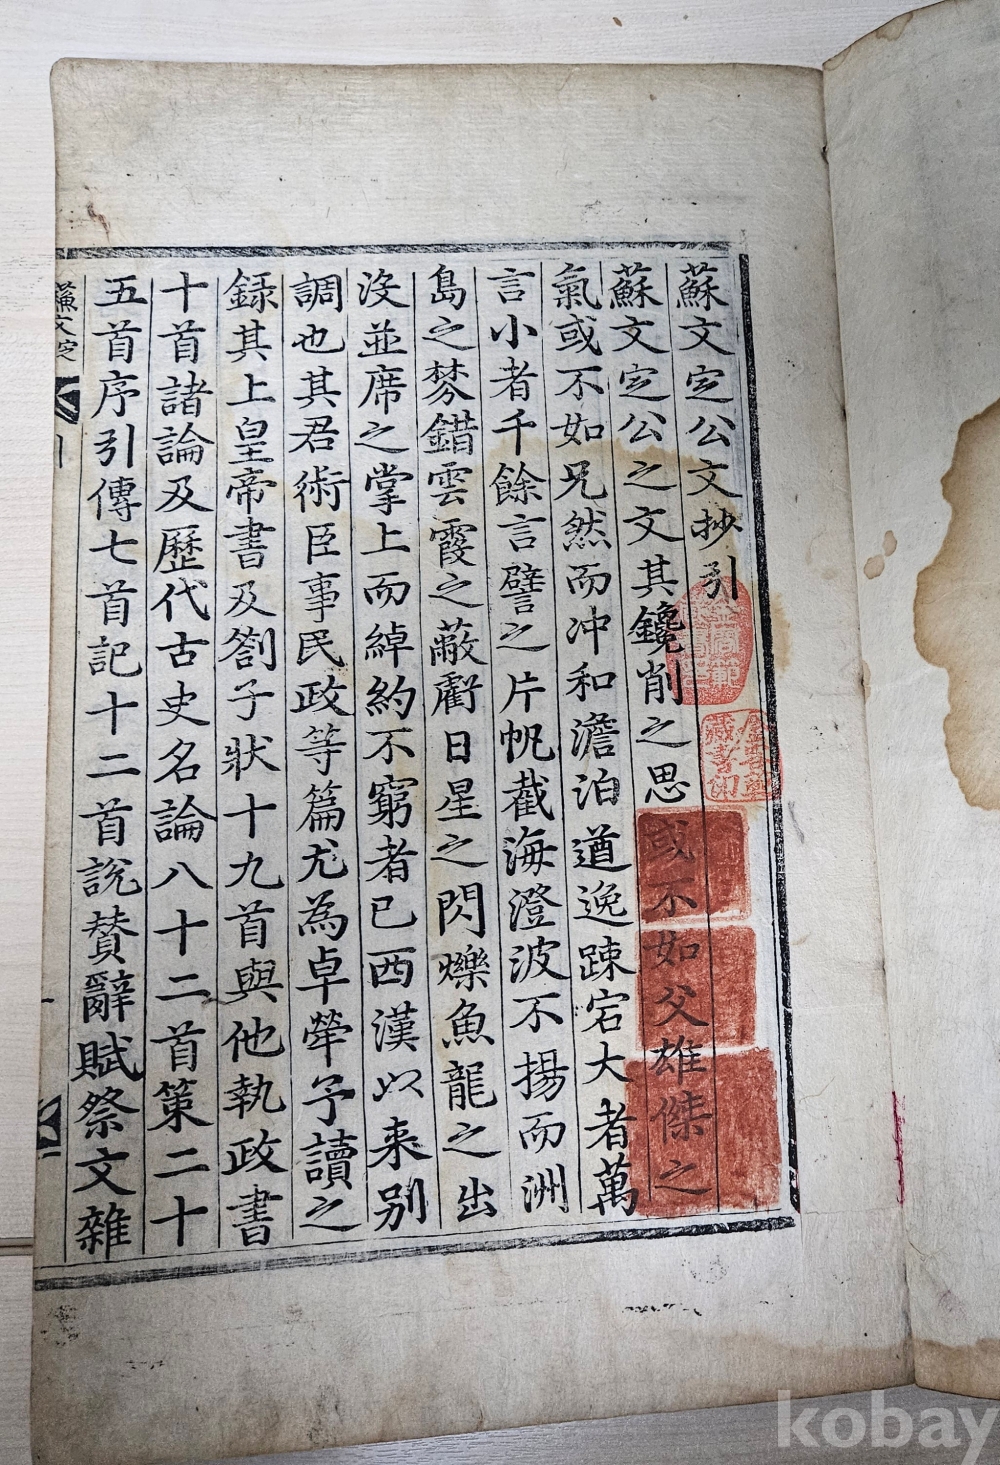 蘇文定公文抄引
蘇文定公之文其鑱削之思或不如父雄傑之
氣或不如兄然而冲和澹泊遒逸踈宕大者萬
言小者千餘言譬之片帆截海澄波不揚而洲
島之棼錯雲霞之蔽虧日星之閃爍魚龍之出
沒並席之掌上而綽約不窮者已西漢以来别
調也其君術臣事民政等篇尤為卓犖予讀之
録其上皇帝書及劄子狀十九首與他執政書
十首諸論及歷代古史名論八十二首策二十
五首序引傳七首記十二首說贊辭賦祭文雜
蘇文定
引
藏書印
kobay